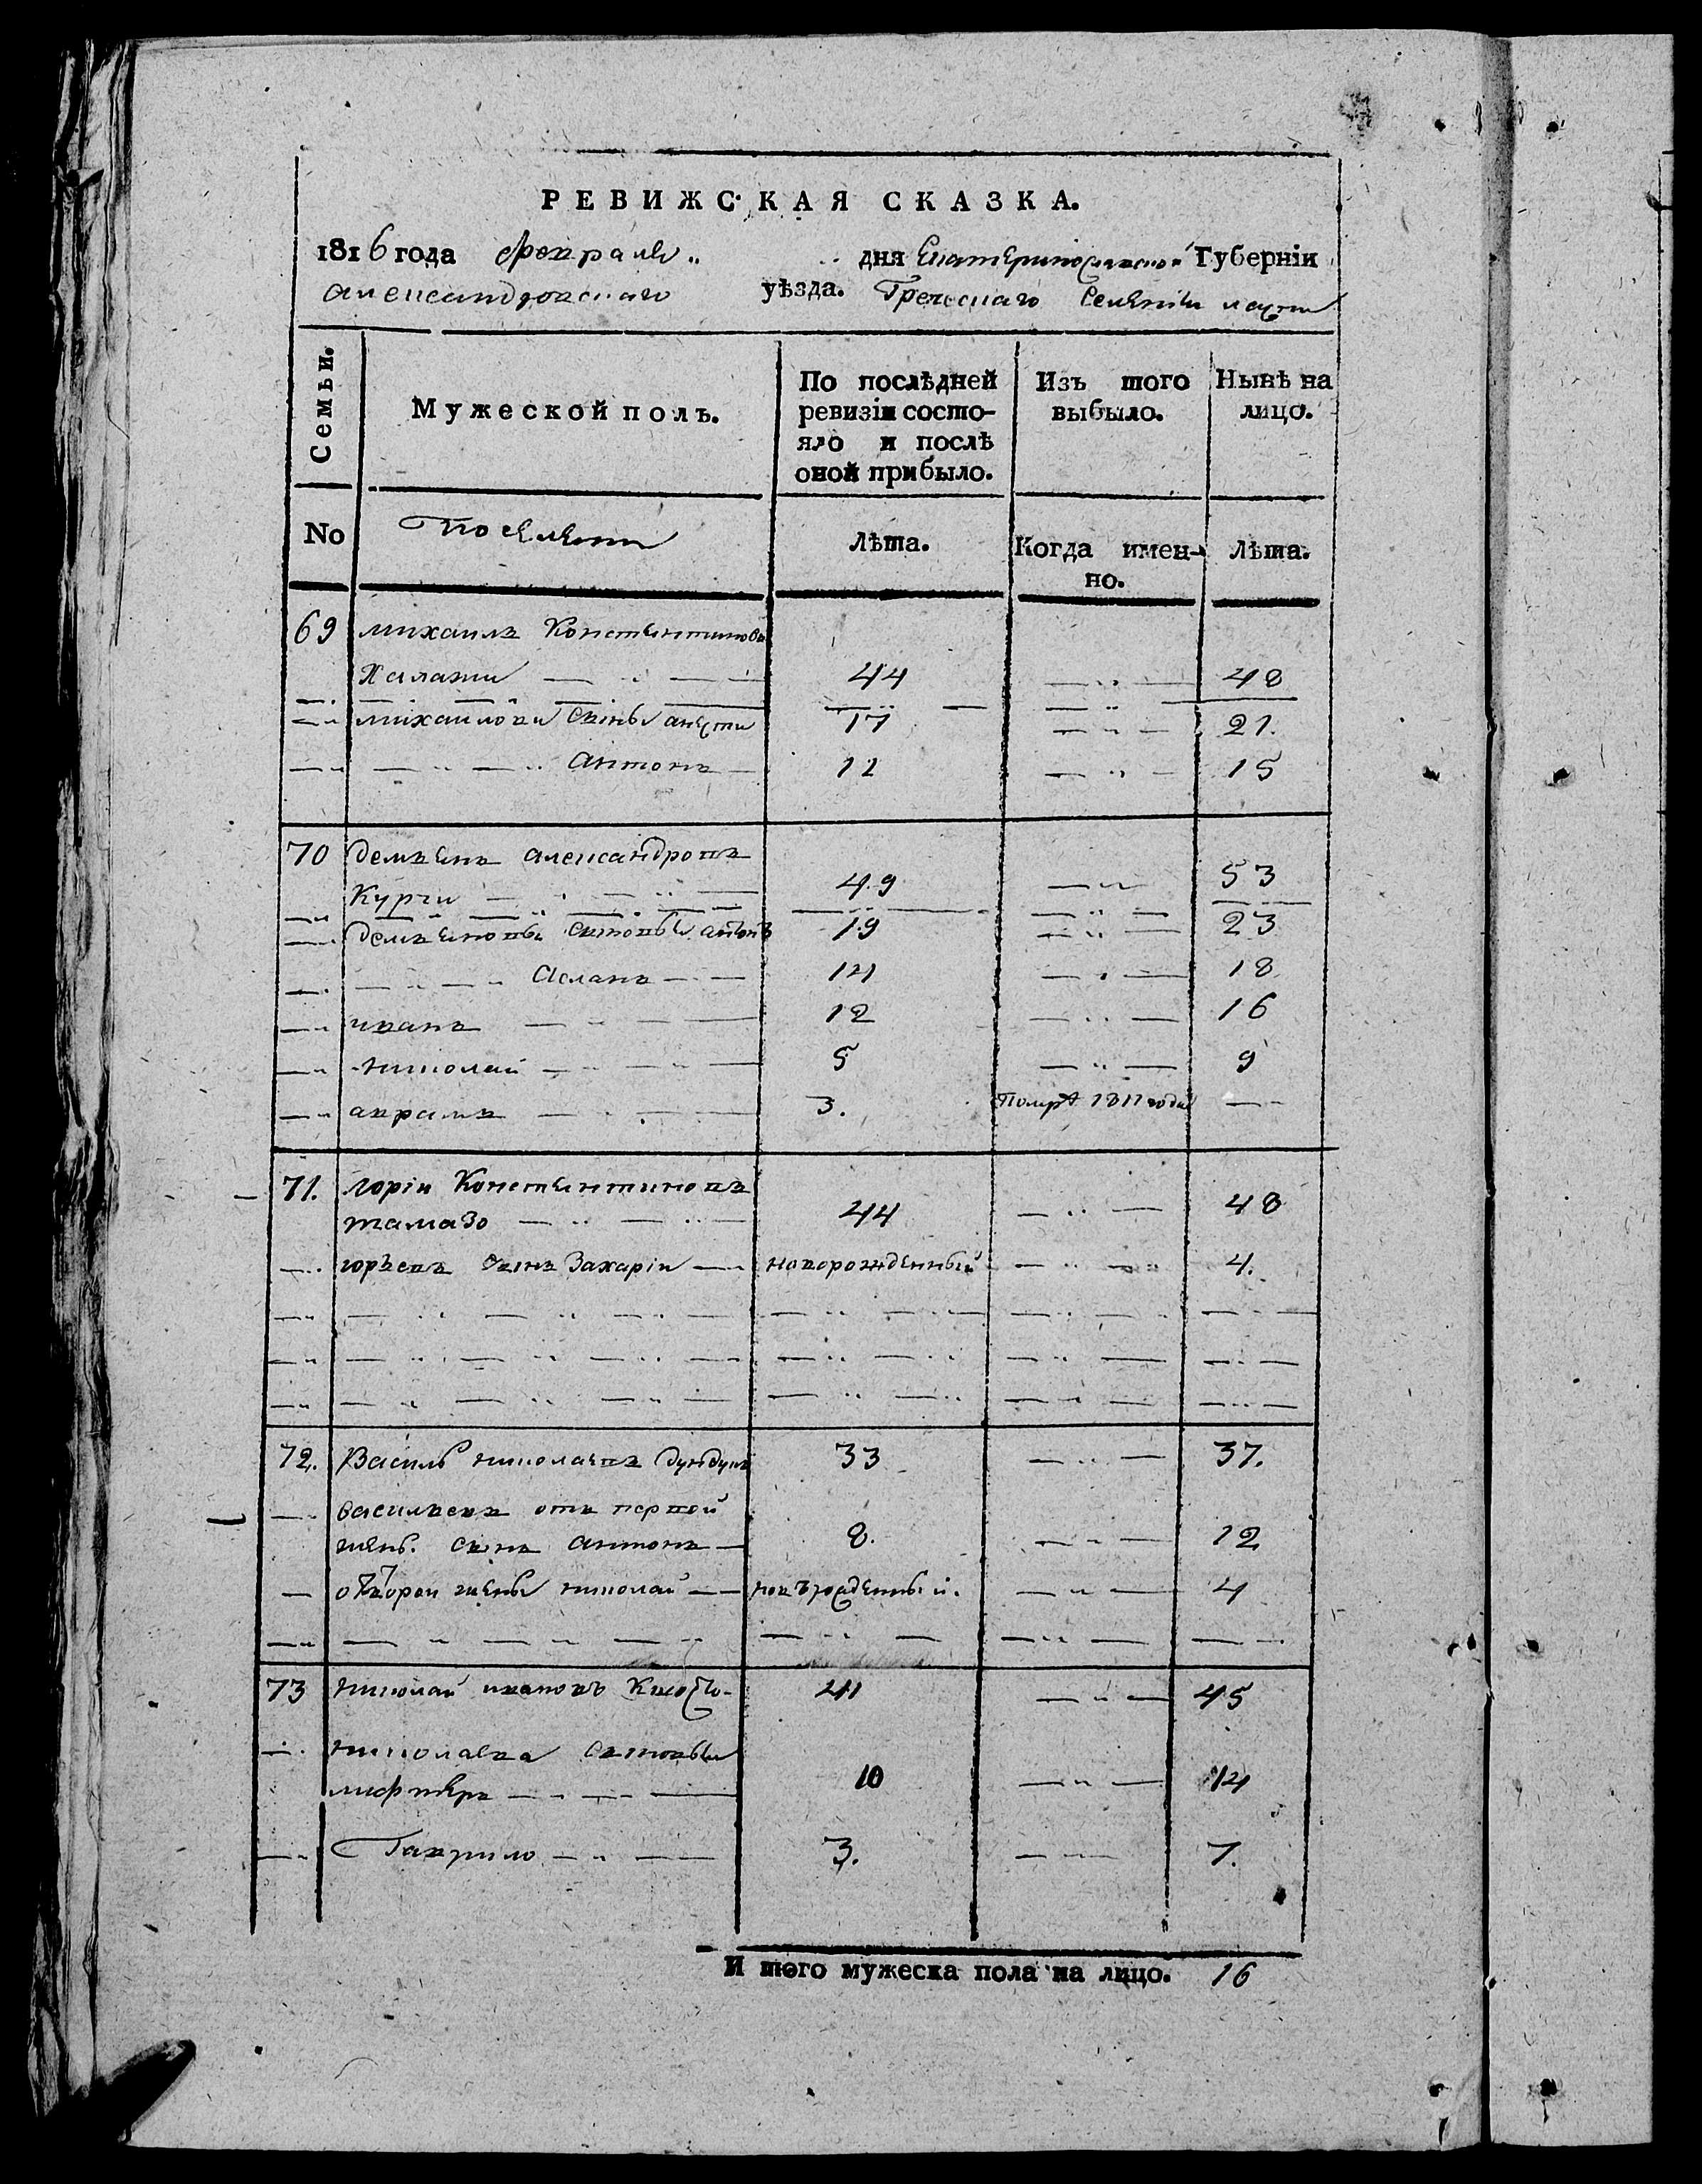 РЕВИЖСКАЯ СКАЗКА.
1816 года февраля дня Екатеринославской Губерніи
александровскаго уѣзда. Греческаго Селенія
Семьи.
Мужеской полъ.
По послѣдней ревизіи состояло и послѣ оной прибыло.
Изъ того выбыло.
Нынѣ на лицо.
No
Поселяни
Лѣта.
Когда именно.
Лѣта.
69 михаилъ Константиновъ
Халажи 44 48
михаилови сыны 17 21.
антонъ 12 15
70 демьянъ александровъ
Курчи 49 53
демьяновы сыновья 19 23
асланъ 14 18
иванъ 12 16
николай 5 9
аврамъ 3. Помре 1811 года
71. Горіи Константиновъ
тамазо 44 48
горъевъ сынъ Захаріи новорожденный 4.
72. Василь николаевъ дундукъ 33 37.
васильевъ отъ первой
жены. сынъ антонъ 8. 12
отвторои жены николай 4
73 николай ивановъ 41 45
николаева сыновья
10 14
Гаврило 3. 7.
И того мужеска пола на лицо. 16